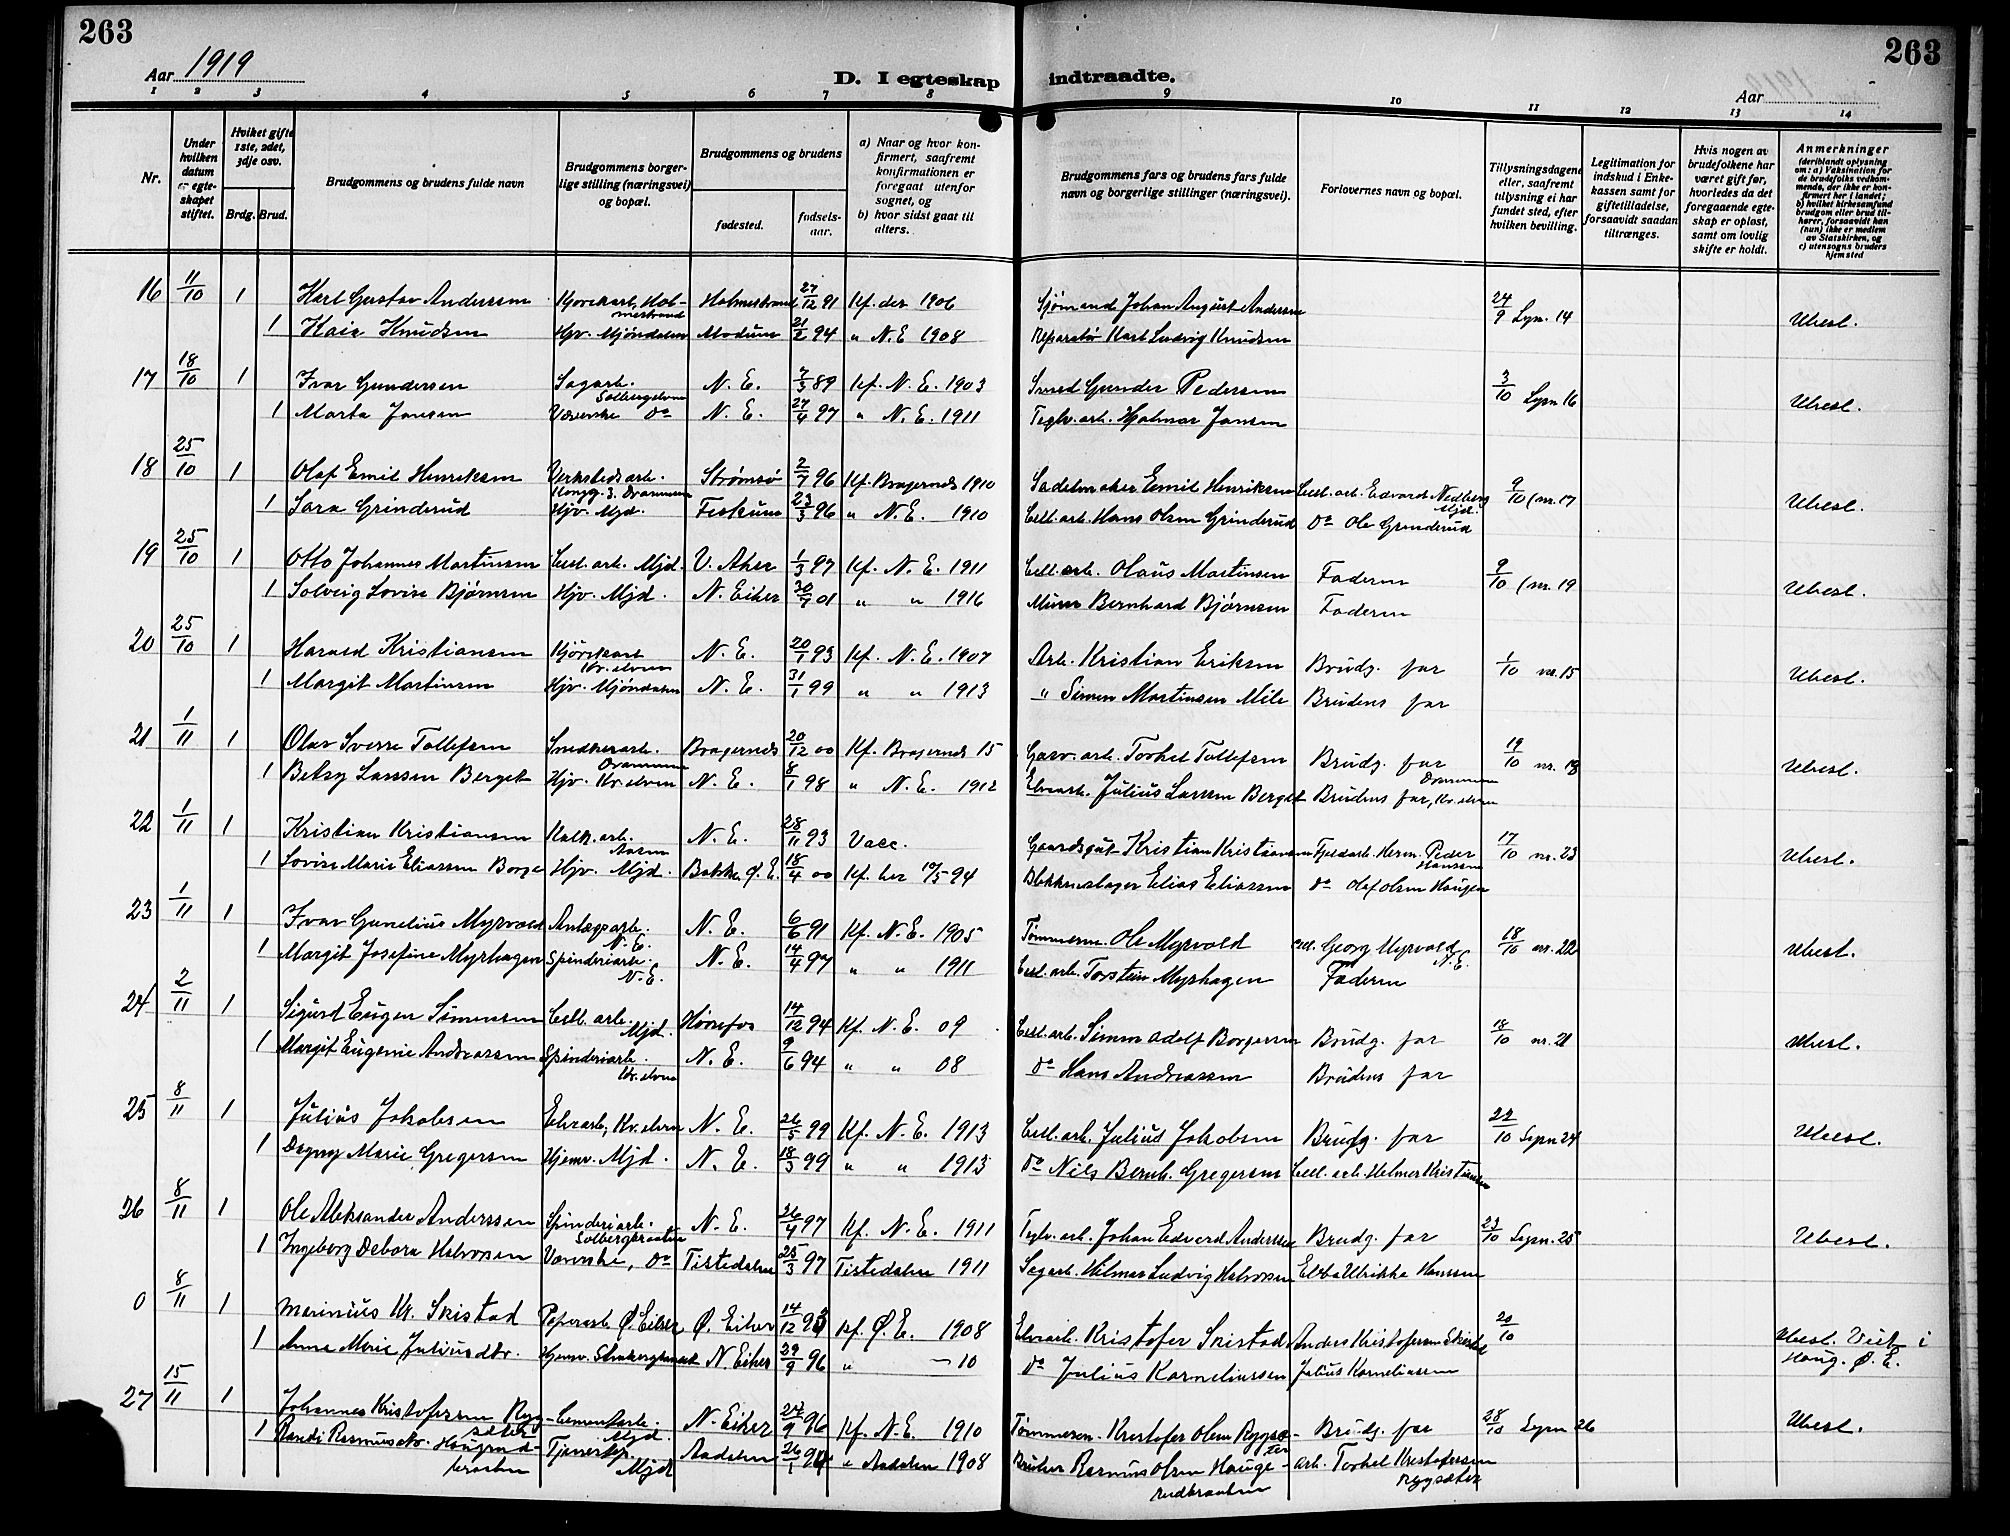 263
263
Aar 1919
D. I egteskap indtraadte.
Aar
1 2 3 4 5 6 7 8 9 10 11 12 13 14
Nr.
Under hvilken datum er egteskapet stiftet.
Hvilket gifte 1ste, 2det, 3dje osv.
Brdg. Brud.
Brudgommens og brudens fulde navn
Brudgommens borgerlige stilling (næringsvei) og bopæl.
Brudgommens og brudens
fødested.
fødselsaar.
a) Naar og hvor konfirmert, saafremt konfirmationen er foregaat utenfor sognet, og
b) hvor sidst gaat til alters.
Brudgommens fars og brudens fars fulde navn og borgerlige stillinger (næringsvei).
Forlovernes navn og bopæl.
Tillysningsdagene eller, saafremt tilysning ei har fundet sted, efter hvilken bevilling.
Legitimation for indskud i Enkekassen samt for giftetilladelse, forsaavidt saadan tiltrænges.
Hvis nogen av brudefolkene har været gift før, hvorledes da det foregaaende egteskap er opløst, samt om lovlig skifte er holdt.
Anmerkninger
(deriblandt oplysning om: a) Vaksination for de brudefolks vedkommende, der ikke er konfirmert her i landet;
b) hvilket kirkesamfund brudgom eller brud tilhører, forsaavidt han (hun) ikke er medlem av Statskirken, og
c) utensogns bruders hjemsted
16 11/10 1 Karl Gustav Anderssen Kjørekarl, Holmestrand Holmestrand 27/12 91 Kf. der 1906 Sjømand Johan August Anderssen 24/9 Lysn. 14 Ubesl.
1 Kaia Knudsen Hjv. Mjøndalen Modum 21/2 94 " N.E 1908 Reparatør Karl Ludvig Knudsen
17 18/10 1 Ivar Gundersen Sagarb. Solbergelven N. E. 7/3 89 Kf. N. E. 1903 Smed Gunder Pedersen 3/10 Lysn 16 Ubesl.
1 Marta Jansen Væverske do N. E. 27/4 97 " N. E. 1911 Teglv. arb. Hjalmar Jansen
18 25/10 1 Olaf Emil Henriksen Verkstedsarb. Kongsg. 3. Drammen Strømsø 2/7 96 Kf. Bragernes 1910 Sadelmaker Emil Henriksen Cell. arb. Edvard Nedberg Mjd. 9/10 (nr. 17 Ubesl.
1 Sara Grinderud Hjv. Mjd. Fiskum 23/3 96 " N. E. 1910 Cell. arb. Hans Olsen Grinderud do Ole Grinderud
19 25/10 1 Otto Johannes Martinsen Cell. arb. Mjd. V. Aker 1/3 97 Kf. N. E. 1911 Cell. arb. Olaus Martinsen Faderen 9/10 (nr. 19 Ubesl.
1 Solveig Lovise Bjørnsen Hjv. Mjd. N. Eiker 30/7 01 " " 1916 Murer Bernhard Bjørnsen Faderen
20 25/10 1 Harald Kristiansen Kjørekarl Kr. elven N. E. 20/1 93 Kf. N. E. 1907 Arb. Kristian Eriksen Brudg. far 1/10 nr. 15 Ubesl.
1 Margit Martinsen Hjv. Mjøndalen N. E. 31/1 99 " " 1913 " Simen Martinsen Mile Brudens far
21 1/11 1 Olav Sverre Tollefsen Snedkerarb. Drammen Bragernes 20/12 00 Kf. Bragernes 15 Garv. arb. Torkel Tollefsen Brudg. far Drammen 19/10 nr. 18 Ubesl.
1 Betsy Larssen Berget Hjv. Kr. elven N. E. 8/1 98 " N. E. 1912 Elvearb. Julius Larssen Berget Brudens far, Kr. elven
22 1/11 1 Kristian Kristiansen Kalk. arb. Aasen N. E. 28/11 93 Vacc. Gaardsgut Kristian Kristiansen Fjeldarb. Herm. Peder Hanssen 17/10 nr. 23 Ubesl.
1 Lovise Marie Eliassen Borge Hjv. Mjd. Bakke Ø. E. 18/4 00 Kf. her 10/5 94 Blikkenslager Elias Eliassen do Olaf Olsen Haugen
23 1/11 1 Ivar Gunelius Myrvold Anlægsarb. N. E. N. E. 6/6 91 Kf. N. E. 1905 Tømmerm. Ole Myrvold cell. Georg Myrvold N. E. 18/10 nr. 22 Ubesl.
1 Margit Josefine Myrhagen Spinderiarb. N. E. N. E. 14/4 97 " " 1911 Cell. arb. Torstein Myrhagen Faderen
24 2/11 1 Sigurd Eugen Simensen Cell. arb. Mjd. Hønefos 14/12 94 Kf. N. E. 09 Cell. arb. Simen Adolf Borgersen Brudg. far 18/10 nr. 21 Ubesl.
1 Margit Eugenie Andreassen Spinderiarb. Kr. elven N. E. 9/6 94 " " 08 do Hans Andreassen Brudens far
25 8/11 1 Julius Jakobsen Elvearb, Kr. elven N. E. 26/5 99 Kf. N. E. 1913 Cell. arb. Julius Jakobsen Brudg. far 22/10 Lysn 24 Ubesl.
1 Dagny Marie Gregersen Hjemv. Mjd. N. E. 18/3 99 " " 1913 do Nils Bernh. Gregersen Cell. arb. Helmer Kristiansen
26 8/11 1 Ole Aleksander Anderssen Spinderiarb. N. E. 26/4 97 Kf. N. E. 1911 Teglv. arb. Johan Edvard Anderssen Brudg. far 23/10 Lysn. 25 Ubesl.
1 Ingeborg Debora Halvorsen Væverske, do Tistedalen 25/3 97 Tistedalen 1911 Sagarb. Hilmar Ludvig Halvorsen Ebba Ulrikke Hanssen
0 8/11 1 Marinius Kr. Skistad Papirarb Ø. Eiker Ø. Eiker 14/12 93 Kf. Ø. E. 1908 Elvearb. Kristofer Skistad Anders Kristofersen Skistad 20/10 Ubesl. Viet i Haug. Ø. E.
1 Anna Marie Juliusdtr. Hjemv. N Eiker 29/9 96 " — 10 do Julius Korneliussen Julius Korneliussen
27 15/11 1 Johannes Kristofersen Ryggsæter Cementarb. Mjd. N. Eiker 24/9 96 Kf. N. E. 1910 Tømmerm. Kristofer Olsen Ryggsæter Brudg. far 28/10 Lysn 26 Ubesl.
1 Randi Rasmusdtr. Haugerudbraaten Tjenestep. Mjd Aadalen 26/1 94 " Aadalen 1908 Bruker Rasmus Olsen Haugerudbraaten arb. Torkel Kristoferssen Ryggsæter